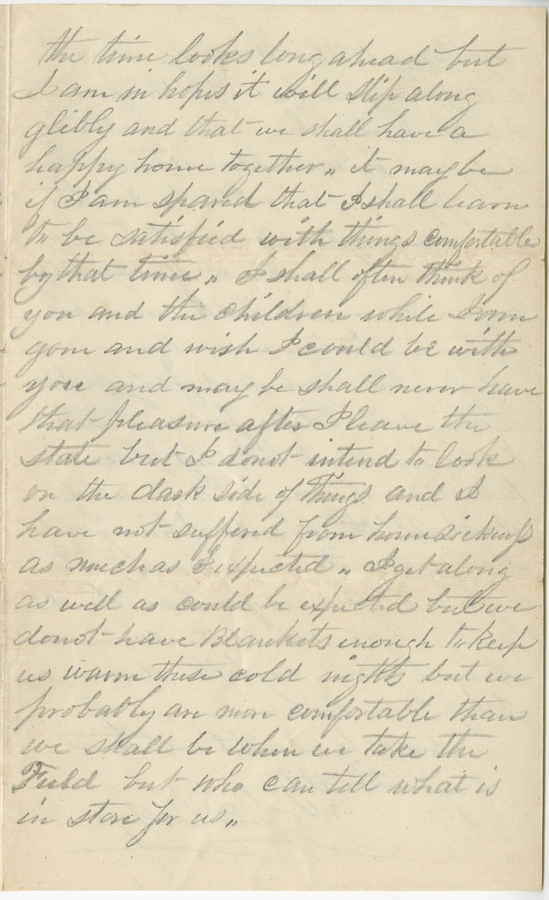 the time looks long ahead but
I am in hopes it will slip along
glibly and that we shall have a
happy home together,, it may be
if I am spared that I shall learn
to be satisfied with things comfortable
by that time,, I shall often think of
you and the children while I am
gone and wish I could be with
you and may be shall never have
that pleasure after I leave the
state but I donot intend to look
on the dark side of things and I
have not suffered from homesickness
as much as I expected,, I get along
as well as could be expected but we
donot have Blankets enough to keep
us warm these cold nights but we
probably are more comfortable than
we shall be when we take the
Field but who can tell what is
in store for us,,